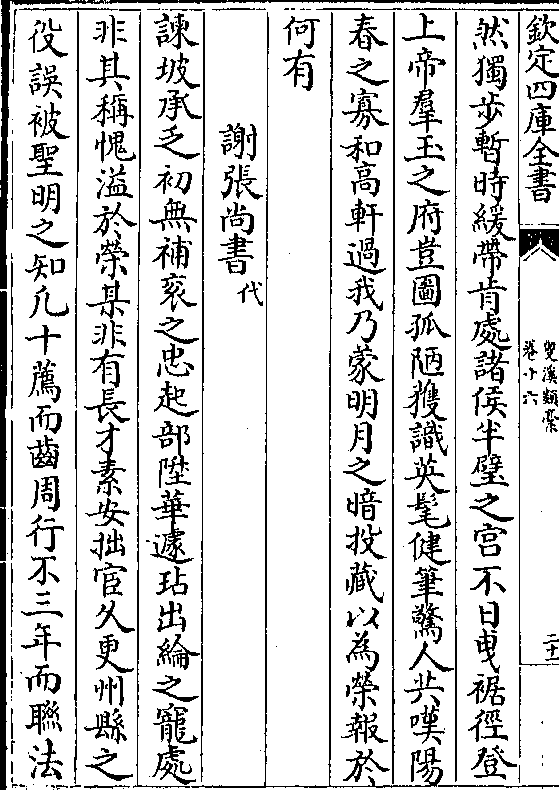 欽定四庫全書
雙溪類槀
卷十六
二十
然獨步暫時緩帶肯處諸侯半璧之宫不日曵裾徑登
上帝羣玉之府豈圖孤陋獲識英髦健筆驚人共嘆陽
春之寡和高軒過我乃蒙明月之暗投藏以為榮報於
何有
謝張尚書代
諫坡承乏初無補衮之忠起部陞華遽玷出綸之寵處
非其稱愧溢於榮某非有長才素安拙宦久更州縣之
役誤被聖明之知凡十薦而齒周行不三年而聮法